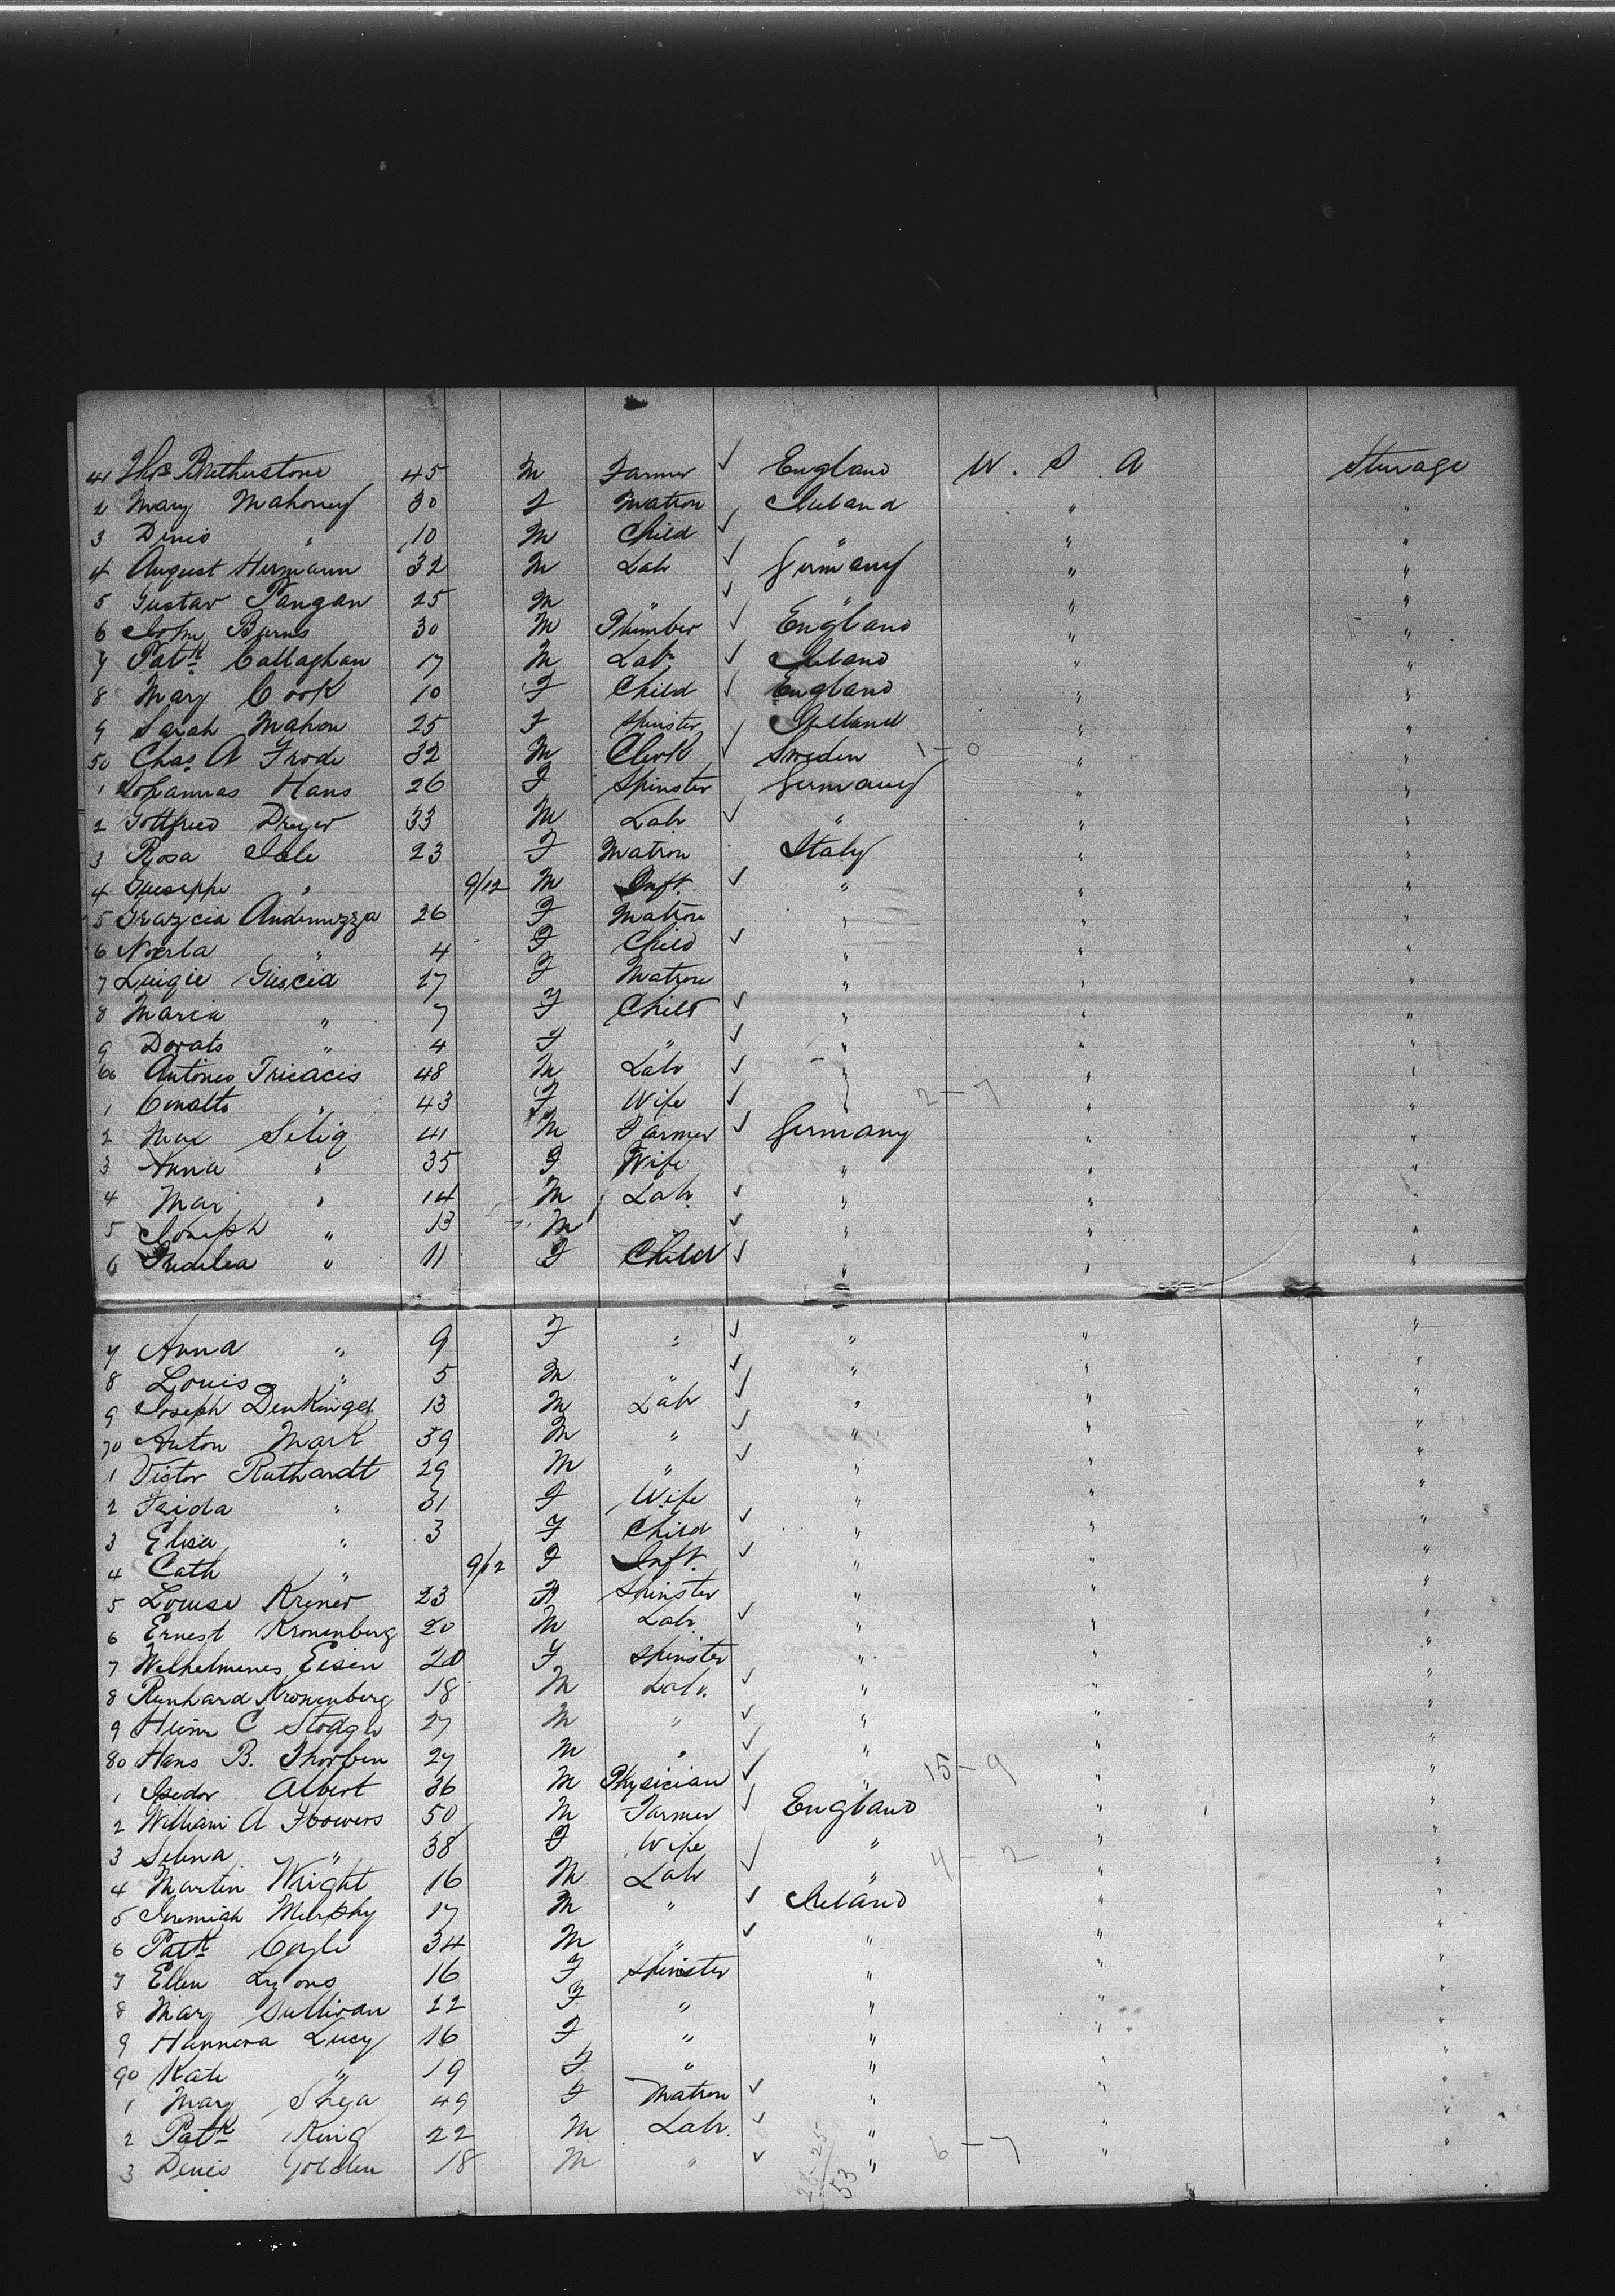 41 Thos Bretherstone 45 M Farmer ✓ England U. S. A Sturage
2 Mary Mahoney 30 F Matron Ireland " "
3 Dinis " 10 M Child ✓ " " "
4 August Hermann 32 M Labr ✓ Germany " "
5 Gustav Pangan 25 M " ✓ " " "
6 John Burns 30 M Plumber ✓ England " "
7 Patk Callaghan 17 M Labr ✓ Ireland " "
8 Mary Cook 10 F Child ✓ England " "
9 Sarah Mahon 25 F Spinster Ireland " "
50 Chas. A Frode 32 M Clerk ✓ Sweden 1-0 " "
1 Johannas Hans 26 F Spinster Germany " "
2 Gottfried Dreyer 33 M Labr ✓ " " "
3 Rosa 23 F Matron Italy " "
4 Guiseppe " 9/12 M Inft. ✓ " " "
5 Grazcia Andenuzza 26 F Matron " " "
6 " 4 F Child ✓ " " "
7 Luigie Guscia 27 F Matron " " "
8 Maria " 7 F Child ✓ " " "
9 Dorato " 4 F " ✓ " " "
60 Antonio Tricacis 48 M Labr ✓ " " "
1 Conatto " 43 F Wife ✓ " 2-7 " "
2 Max Selig 41 M Farmer ✓ Germany " "
3 Anna " 35 F Wife " " "
4 Max " 14 M Labr. ✓ " " "
5 Joseph " 13 M ✓ " " "
6 " 11 F Child ✓ " " "
7 Anna " 9 F " ✓ " " "
8 Louis " 5 M " ✓ " " "
9 Joseph Denkinger 13 M Labr ✓ " " "
70 Anton Mark 39 M " ✓ " " "
1 Victor Ruthardt 29 M " ✓ " " "
2 Frida " 31 F Wife " " "
3 Elisa " 3 F Child ✓ " " "
4 Cath " 9/12 F Inft. ✓ " " "
5 Louise Krener 23 F Spinster " " "
6 Ernest Kronenberg 20 M Labr ✓ " " "
7 Wilhelmenes Eisen 20 F Spinster " " "
8 Renhard Kronenberg 18 M Labr. ✓ " " "
9 C Stodgle 27 M " ✓ " " "
80 Hans B. Thorben 27 M " ✓ " " "
1 Isedor Albert 36 M Physician ✓ " 15-9 " "
2 William A Flowers 50 M Farmer ✓ England " "
3 Selina " 38 F Wife " " "
4 Martin Wright 16 M Labr ✓ " 4-2 " "
5 Jeremiah Murphy 17 M " ✓ Ireland " "
6 Patk Coyle 34 M " ✓ " " "
7 Ellen Lyons 16 F Spinster " " "
8 Mary Sullivan 22 F " " " "
9 Hannora Lucy 16 F " " " "
90 Kate " 19 F " " " "
1 Mary Shea 49 F Matron ✓ " " "
2 Patk King 22 M Labr. ✓ " " "
3 Denis Golden 18 M " ✓ " 6-7 " "
28-25
53